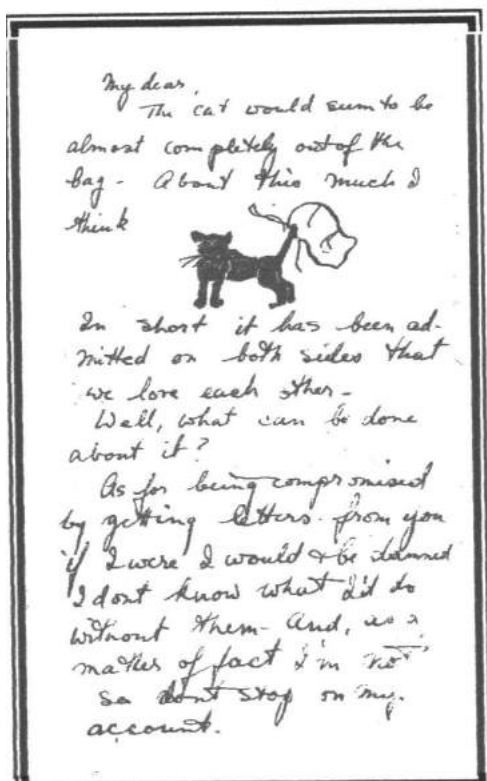 My dear,
The cat would seem to be
almost completely out of the
bag - About this much I
think
In short it has been ad-
mitted on both sides that
we love each other -
Well, what can be done
about it?
As for being compromised
by getting letters from you
if I were I would & be damned
I dont know what I'd do
without them - And, as a
matter of fact I'm not
So dont stop on my
account.